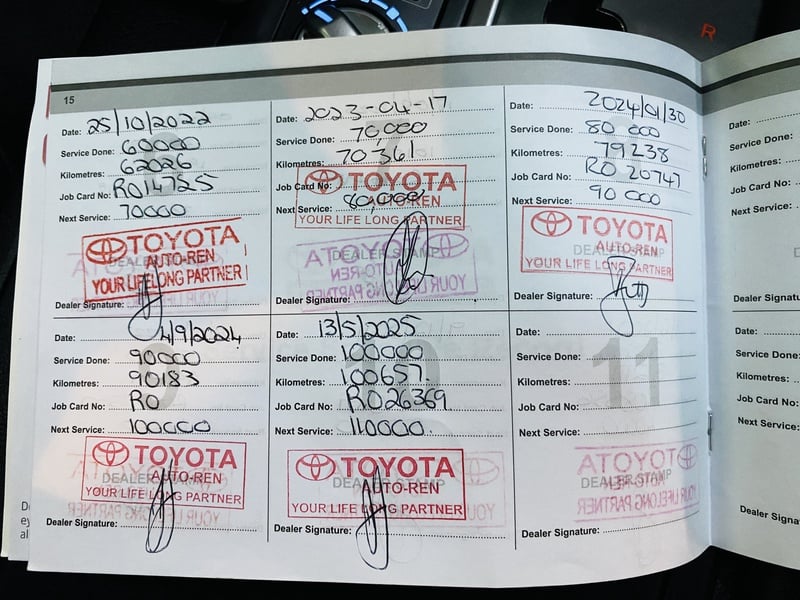 R
15
Date: 25/10/2022
Service Done: 60000
Kilometres: 62026
Job Card No: RO14725
Next Service: 70000
TOYOTA
AUTO-REN
YOUR LIFELONG PARTNER
Dealer Signature:
Date: 2023-04-17
Service Done: 70,000
Kilometres: 70361
Job Card No:
Next Service: 80,000
TOYOTA
AUTO-REN
YOUR LIFE LONG PARTNER
DEALER STAMP
Dealer Signature:
Date: 2024/01/30
Service Done: 80 000
Kilometres: 79238
Job Card No: RO 20747
Next Service: 90 000
TOYOTA
DEALER STAMP
AUTO-REN
YOUR LIFE LONG PARTNER
Dealer Signature:
Date: 4/9/2024
Service Done: 90000
Kilometres: 90183
Job Card No: RO
Next Service: 100000
TOYOTA
DEALER STAMP
AUTO-REN
YOUR LIFE LONG PARTNER
Dealer Signature:
Date: 13/5/2025
Service Done: 100000
Kilometres: 100657.
Job Card No: RO26369
Next Service: 110000.
TOYOTA
DEALER STAMP
AUTO-REN
YOUR LIFE LONG PARTNER
Dealer Signature:
11
Date:
Service Done:
Kilometres:
Job Card No:
Next Service:
DEALER STAMP
Dealer Signature:
Date:
Service Done:
Kilometres:
Job Card No:
Next Service:
Dealer Signatu
Date:
Service Done:
Kilometres:
Job Card No:
Next Service:
Dealer Signa